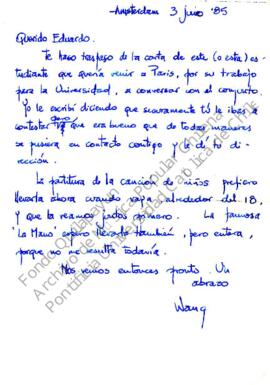 Amsterdam 3 junio '85
Querido Eduardo.
Te hago traspaso de la carta de este (o esta) es-
tudiante que quería venir a Paris, por su trabajo
para la Universidad, a conversar con el conjunto.
Yo le escribí diciendo que seguramente tú le ibas a
contestar pero que era bueno que de todas maneras
se pusiera en contacto contigo y le di tu di-
rección.
La partitura de la canción de niños prefiero
llevarla ahora cuando vaya alrededor del 18,
y que la veamos juntos primero. La famosa
'La Mano' espero llevarla también, pero entera,
porque no me resulta todavía.
Nos vemos entonces pronto. Un
abrazo
Fondo Quilapayún
Archivo de Música Popular Chilena
Pontificia Universidad Católica de Chile